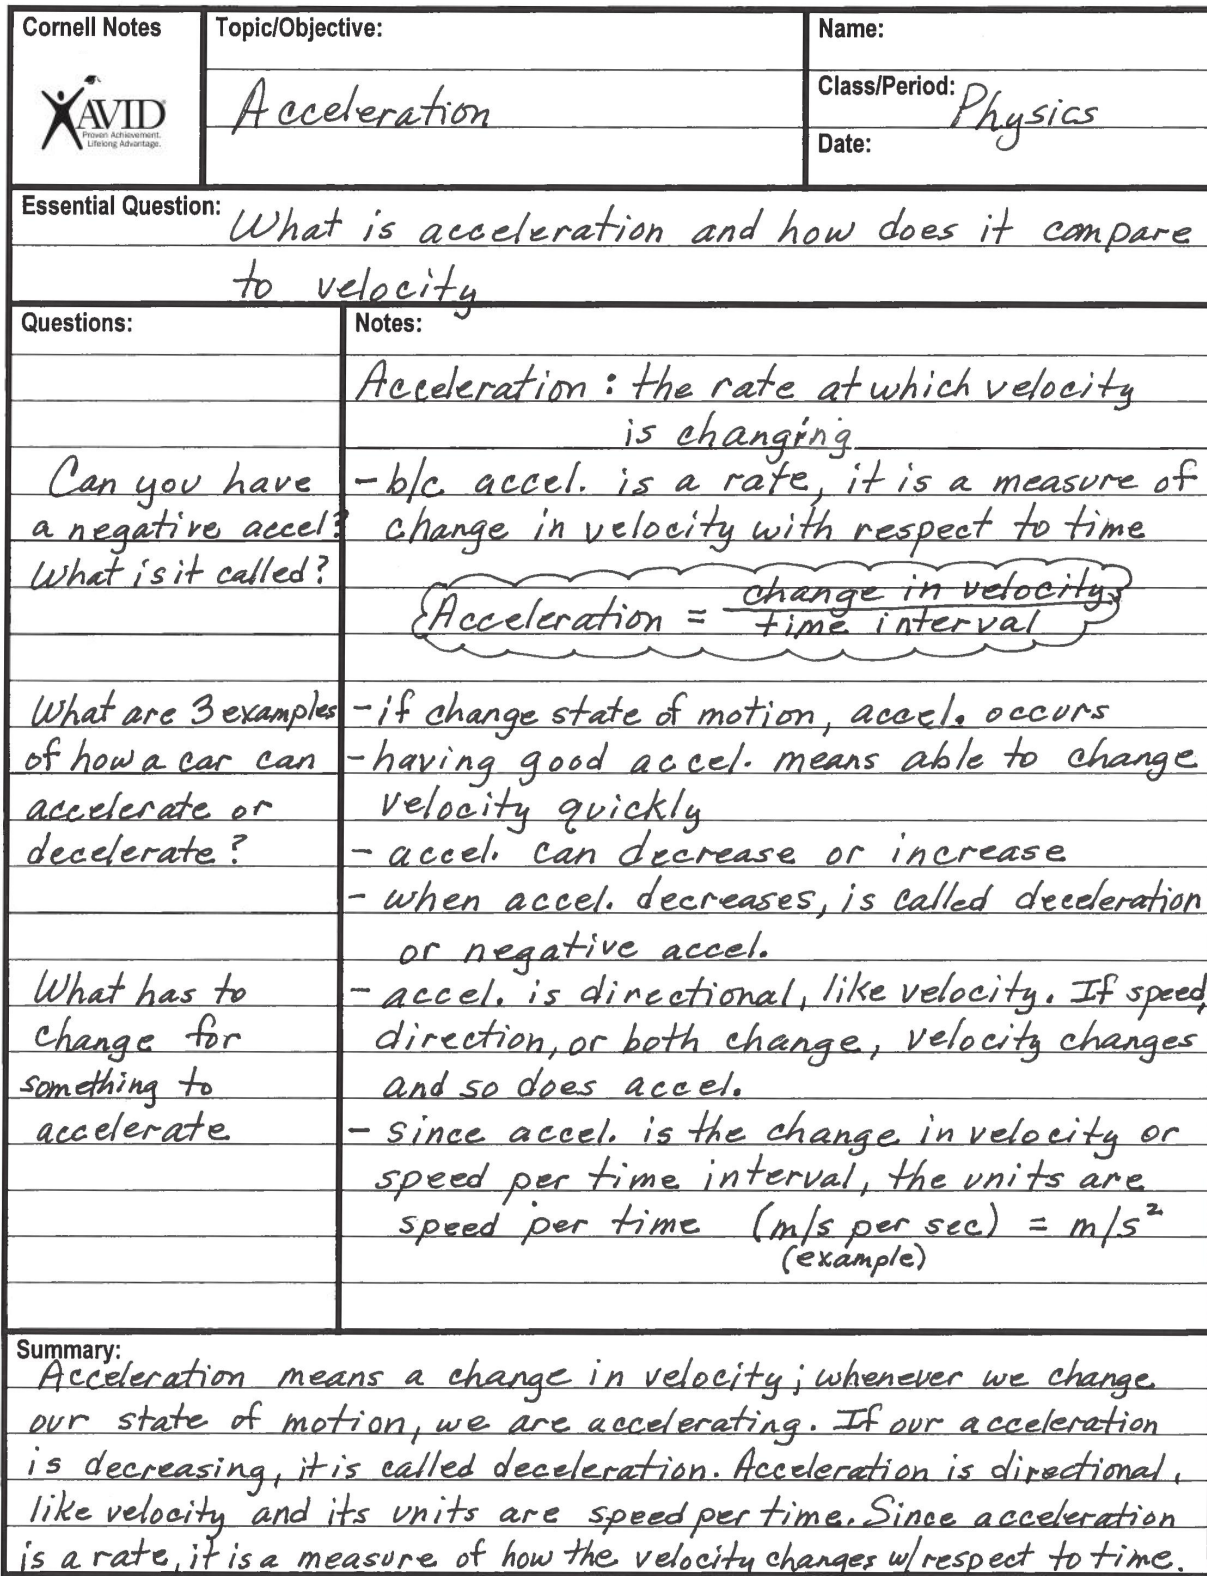 Cornell Notes
AVID
Proven Achievement.
Lifelong Advantage.
Topic/Objective:
Acceleration
Name:
Class/Period: Physics
Date:
Essential Question: What is acceleration and how does it compare
to velocity
Questions:
Can you have
a negative accel?
What is it called?
What are 3 examples
of how a car can
accelerate or
decelerate?
What has to
change for
something to
accelerate
Notes:
Acceleration: the rate at which velocity
is changing
- b/c accel. is a rate, it is a measure of
change in velocity with respect to time
Acceleration = change in velocity
time interval
- if change state of motion, accel. occurs
- having good accel. means able to change
velocity quickly
- accel. can decrease or increase
- when accel. decreases, is called deceleration
or negative accel.
- accel. is directional, like velocity. If speed,
direction, or both change, velocity changes
and so does accel.
- since accel. is the change in velocity or
speed per time interval, the units are
speed per time (m/s per sec) = m/s²
(example)
Summary:
Acceleration means a change in velocity; whenever we change
our state of motion, we are accelerating. If our acceleration
is decreasing, it is called deceleration. Acceleration is directional,
like velocity and its units are speed per time. Since acceleration
is a rate, it is a measure of how the velocity changes w/respect to time.